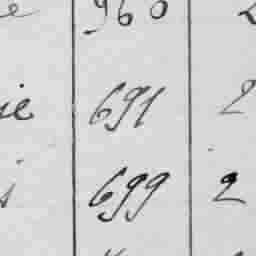 960
ie 691 2
699 2